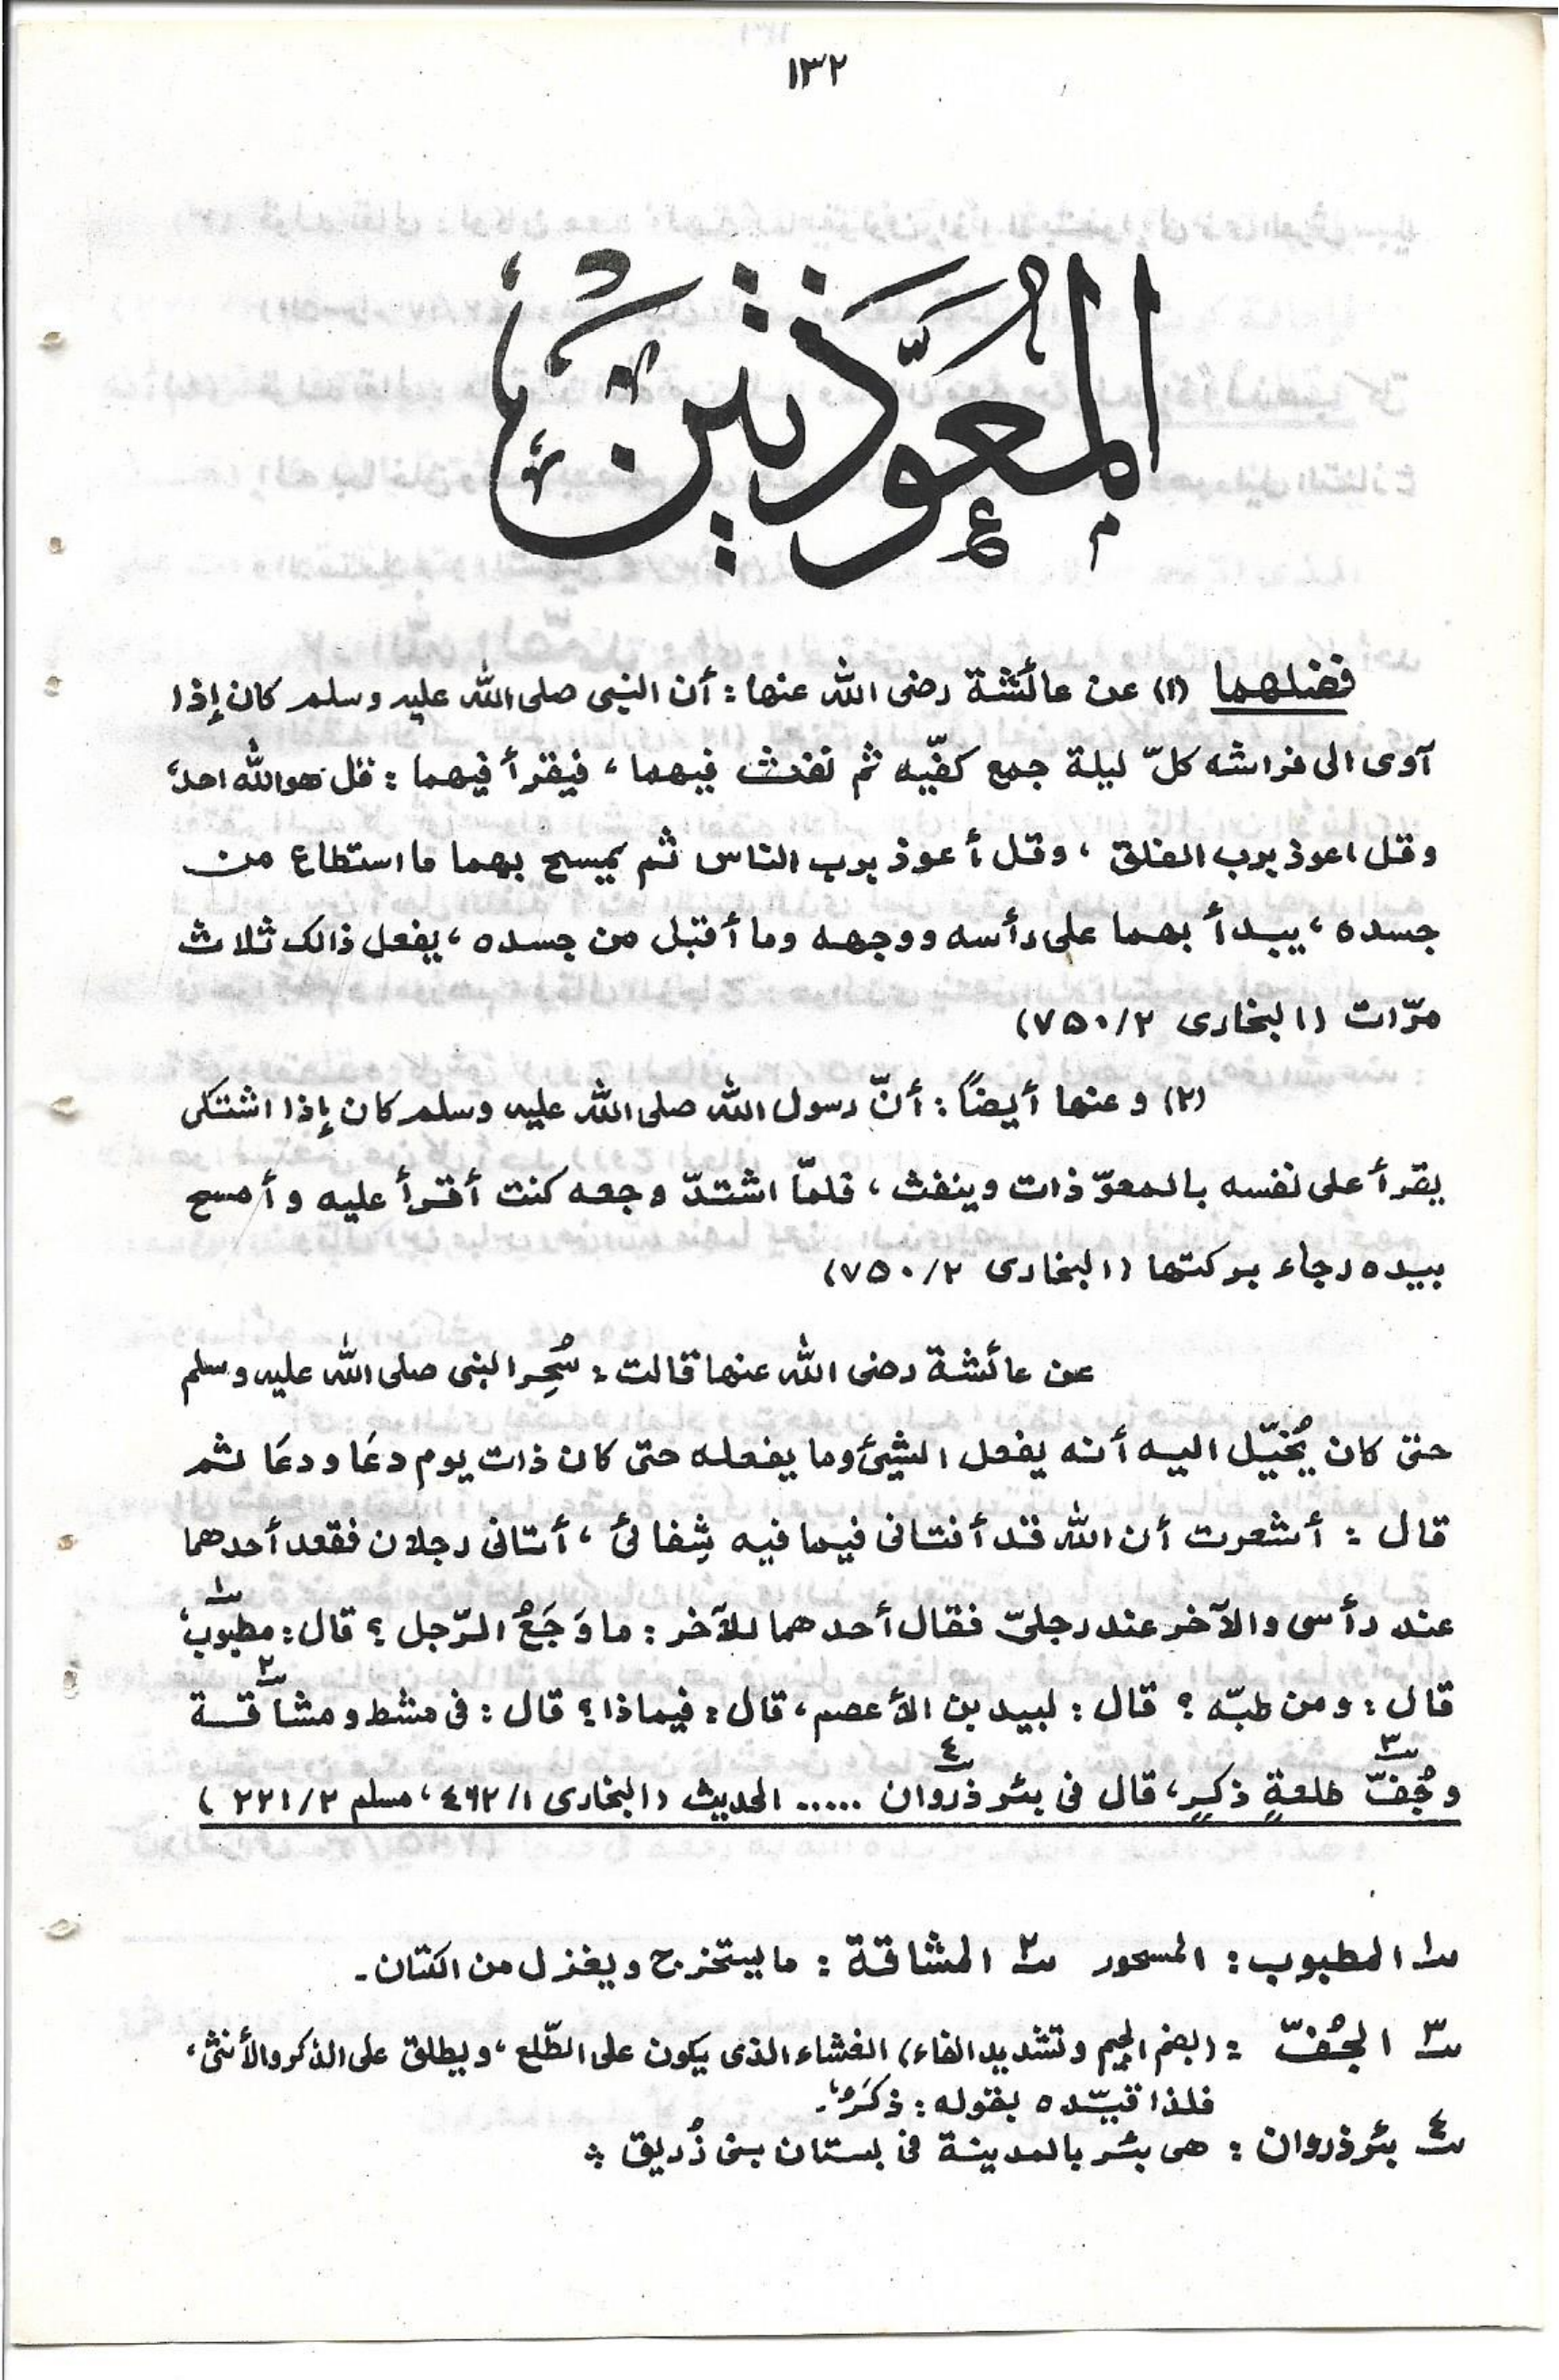 ١٣٢
المعوّذتين
فضلهما (١) عن عائشة رضى الله عنها : أن النبى صلى الله عليه وسلم كان إذا
آوى الى فراشه كلّ ليلة جمع كفّيه ثم نفث فيهما ، فيقرأ فيهما : قل هوالله احد،
وقل اعوذ برب الفلق ، وقل أعوذ برب الناس ثم يمسح بهما ما استطاع من
جسده ، يبدأ بهما على رأسه ووجهه وما أقبل من جسده ، يفعل ذالك ثلاث
مرّات (البخارى ٧٥٠/٢)
(٢) وعنها أيضاً : أنّ رسول الله صلى الله عليه وسلم كان إذا اشتكى
يقرأ على نفسه بالمعوّذات وينفث ، فلمّا اشتدّ وجعه كنت أقرأ عليه وأمسح
بيده رجاء بركتها (البخارى ٧٥٠/٢)
عن عائشة رضى الله عنها قالت : سُحِر النبى صلى الله عليه وسلم
حتى كان يُخيّل اليه أنه يفعل الشيئ وما يفعله حتى كان ذات يوم دعَا ودعَا ثم
قال : أشعرت أن الله قد أفتانى فيما فيه شِفائى ، أتانى رجلان فقعد أحدهما
عند رأسى والآخر عند رجليّ فقال أحدهما للآخر : ما وَجَعُ الرّجل ؟ قال : مطبوب١،
قال : ومن طبّه ؟ قال : لبيد بن الأعصم ، قال : فيماذا ؟ قال : فى مشط ومشاقة٢
وجُفّ٣ طلعةٍ ذكرٍ، قال فى بئر ذروان٤ ..... الحديث (البخارى ٤٦٢/١ ، مسلم ٢٢١/٢ )
١ـ المطبوب : المسحور ٢ـ المشاقة : ما يستخرج ويغزل من الكتان ـ
٣ـ الجُفّ : (بضم الجيم وتشديد الفاء) الغشاء الذى يكون على الطّلع ، ويطلق على الذكر والأنثى ،
فلذا قيّده بقوله : ذكَرٍ ـ
٤ـ بئر ذروان : هى بئر بالمدينة فى بستان بنى زُريق ؞